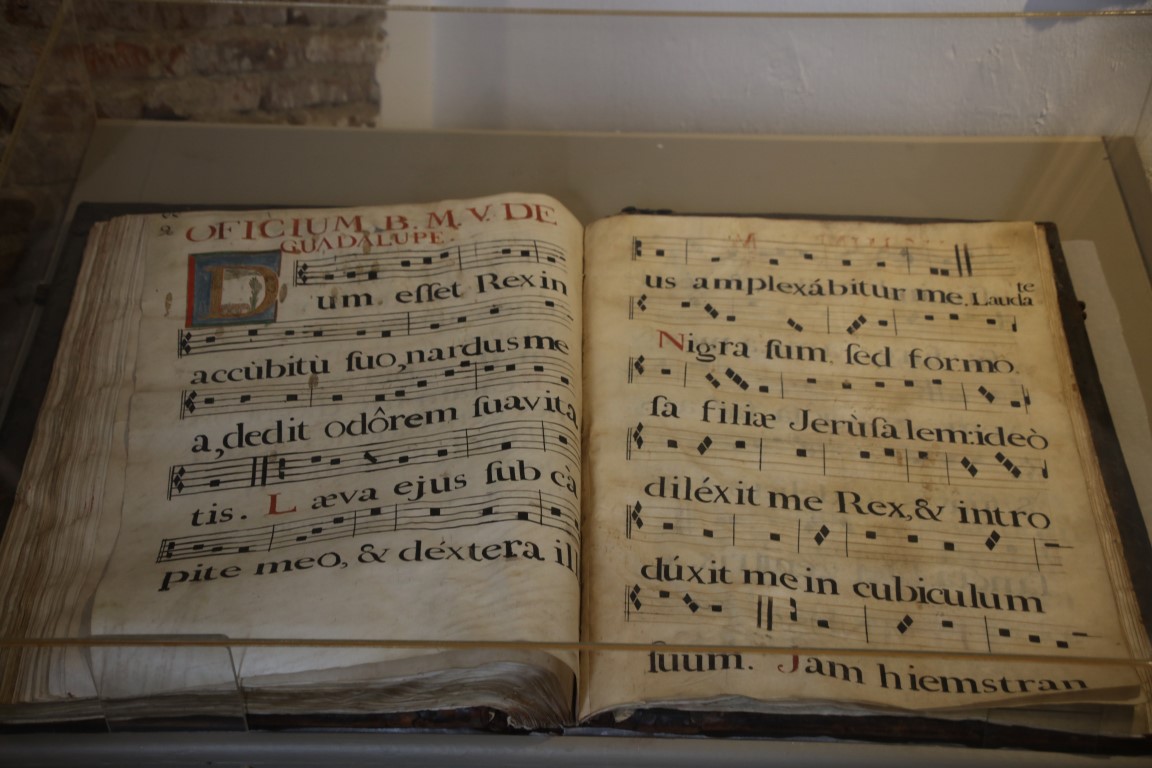 OFICIUM B. M. V. DE
GUADALUPE.
Dum eſſet Rex in
accùbitù ſuo, nardus me
a, dedit odôrem ſuavita
tis. Læva ejus ſub cà
pite meo, & déxtera ill
us amplexábitur me. Laudate
Nigra ſum, ſed formo.
ſa filiæ Jerùſalem: ideò
diléxit me Rex, & intro
dúxit me in cubiculum
ſuum. Jam hiems tran